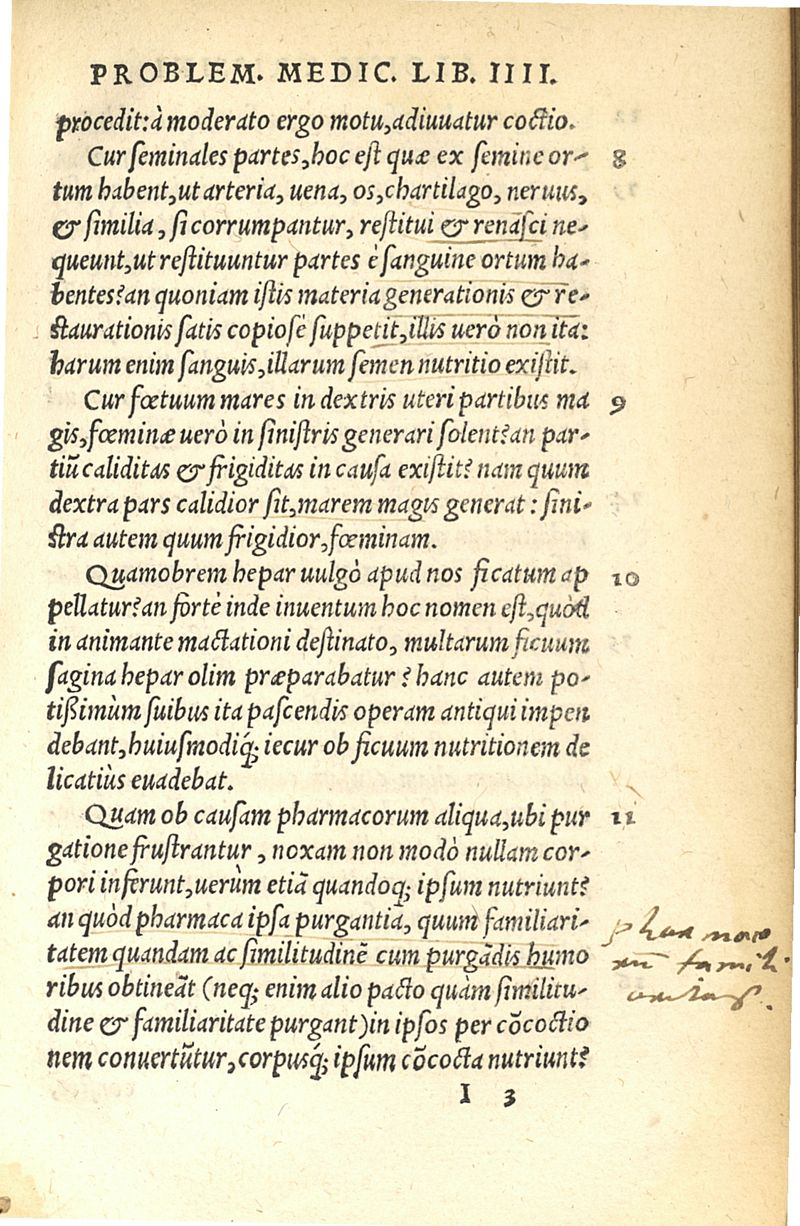 PROBLEM. MEDIC. LIB. IIII.
procedit: à moderato ergo motu, adiuuatur coctio.
Cur seminales partes, hoc est quæ ex semine or- 8
tum habent, ut arteria, uena, os, chartilago, neruus,
& similia, si corrumpantur, restitui & renasci ne-
queunt, ut restituuntur partes è sanguine ortum ha-
bentes? an quoniam istis materia generationis & re-
staurationis satis copiosè suppetit, illis uerò non ita:
harum enim sanguis, illarum semen nutritio existit.
Cur fœtuum mares in dextris uteri partibus ma 9
gis, fœminæ uerò in sinistris generari solent? an par-
tiū caliditas & frigiditas in causa existit? nam quum
dextra pars calidior sit, marem magis generat: sini-
stra autem quum frigidior, fœminam.
Quamobrem hepar uulgò apud nos ficatum ap 10
pellatur? an fortè inde inuentum hoc nomen est, quòd
in animante mactationi destinato, multarum ficuum
sagina hepar olim præparabatur? hanc autem po-
tißimùm suibus ita pascendis operam antiqui impen
debant, huiusmodiq; iecur ob ficuum nutritionem de
licatiùs euadebat.
Quam ob causam pharmacorum aliqua, ubi pur 11
gatione frustrantur, noxam non modò nullam cor-
pori inferunt, uerùm etiā quandoq; ipsum nutriunt?
an quòd pharmaca ipsa purgantia, quum familiari-
tatem quandam ac similitudinē cum purgādis humo
ribus obtineāt (neq; enim alio pacto quàm similitu-
dine & familiaritate purgant) in ipsos per cōcoctio
nem conuertūtur, corpusq́; ipsum cōcocta nutriunt?
I 3